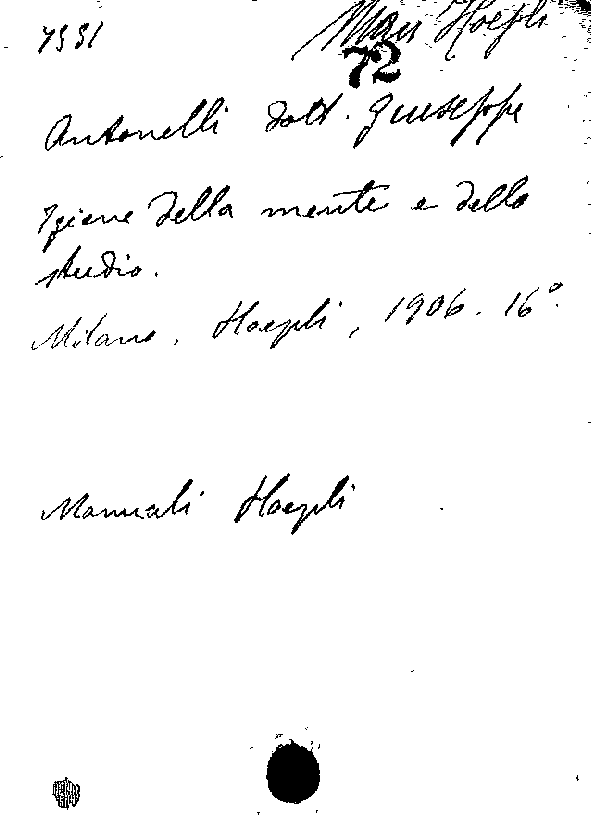 7551 Man Hoepli
72
Antonelli Dott. Giuseppe
Igiene della mente e dello
studio.
Milano, Hoepli, 1906. 16°.
Manuali Hoepli